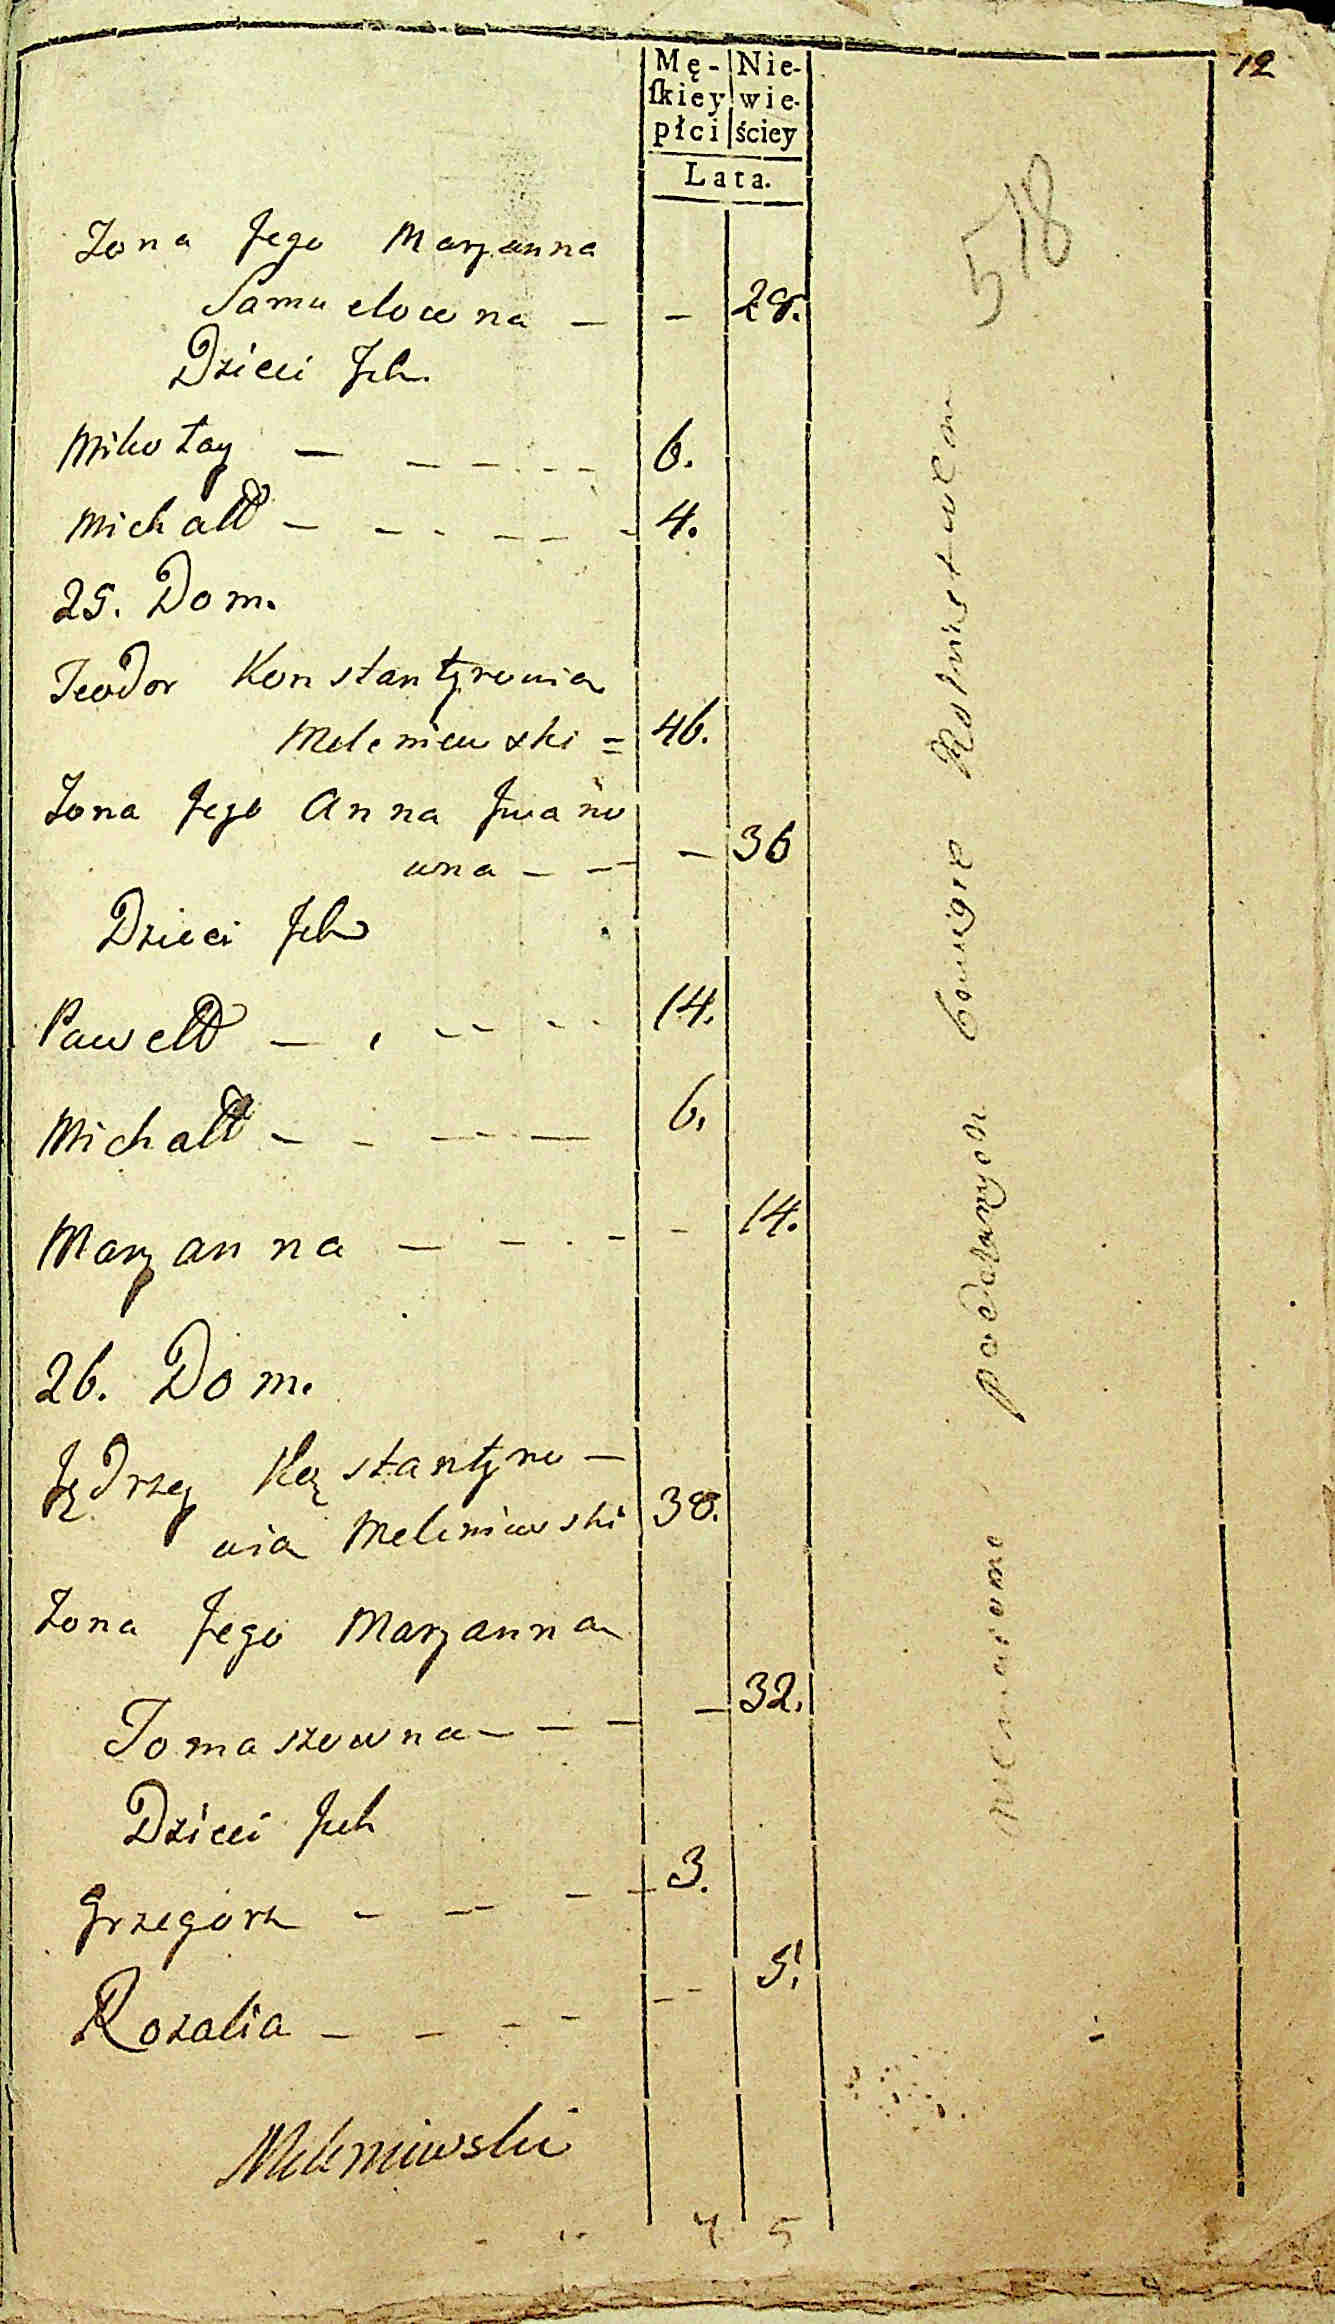 12
Mę- Nie-
ſkiey wie-
płci ściey
Lata.
518
Zona Jego Maryanna
Samuelowna — — 28.
Dzieci Jch.
Mikołay — — — — — 6.
Michałł — — — — — 4.
25. Dom.
Teodor Konstantynowicz
Meleniewski = 46.
Zona Jego Anna Jwano
wna — — — 36
Dzieci Jch
Pawełł — — — — 14.
Michałł — — — — 6.
Maryanna — — — — 14.
26. Dom.
Jędrzey Kąstantyno —
wicz Meleniewski 38.
Zona Jego Maryanna
Tomaszowna — — — — 32.
Dzieci Jch
Grzegorz — — — — 3.
Rozalia — — — — — 5.
Meleniewski
7 5
poddanych